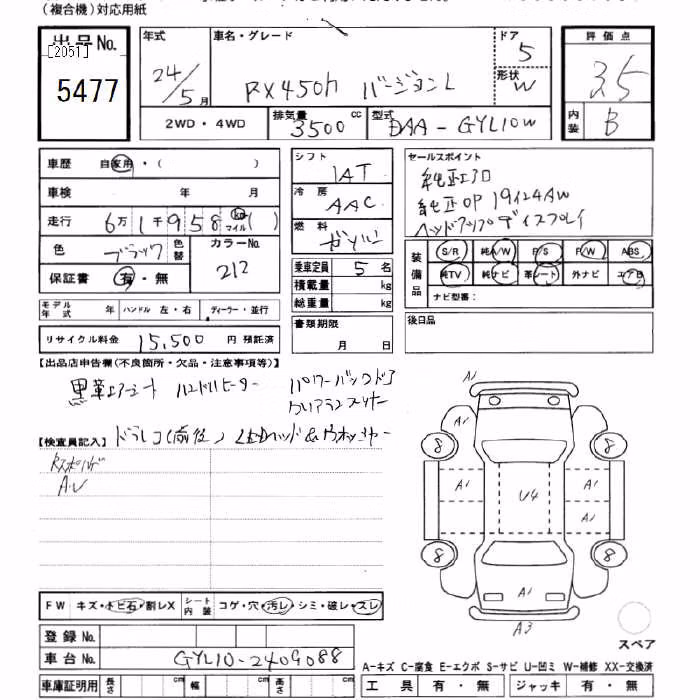 (複合機)対応用紙
出品No.
[2051]
5477
年式
24/5月
車名・グレード
RX450h バージョンL
ドア
5
形状
W
評価点
3.5
内装
B
2WD・4WD
排気量
3500 cc
型式
DAA-GYL10W
車歴 自家用・( )
車検 年 月
走行 6万1千958 km マイル ( )
色 ブラック 色替 カラーNo. 212
保証書 有・無
モデル年式 年 ハンドル 左・右 ディーラー・並行
リサイクル料金 15,500 円 預託済
シフト
IAT
冷房
AAC
燃料
ガソリン
乗車定員 5 名
積載量 kg
総重量 kg
書類期限
月 日
セールスポイント
純正エアロ
純正OP 19インチAW
ヘッドアップディスプレイ
装備品
S/R 純A/W P/S P/W ABS
純TV 純ナビ 革シート 外ナビ エアB
ナビ型番:
後日品
【出品店申告欄(不良箇所・欠品・注意事項等)】
黒革エアシート ハンドルヒーター パワーバックドア
クリアランスソナー
ドラレコ(前後) LEDヘッド&ウォッシャー
【検査員記入】
A・U
A1
8
8
A1
A1
U4
A1
8
8
A1
A3
スペア
FW キズ・トビ石・割レX シート内装 コゲ・穴・汚レ・シミ・破レ・スレ
登録No.
車台No. GYL10-2409088
車庫証明用 長さ cm 幅 cm 高さ cm
A-キズ C-腐食 E-エクボ S-サビ U-凹ミ W-補修 XX-交換済
工具 有・無 ジャッキ 有・無